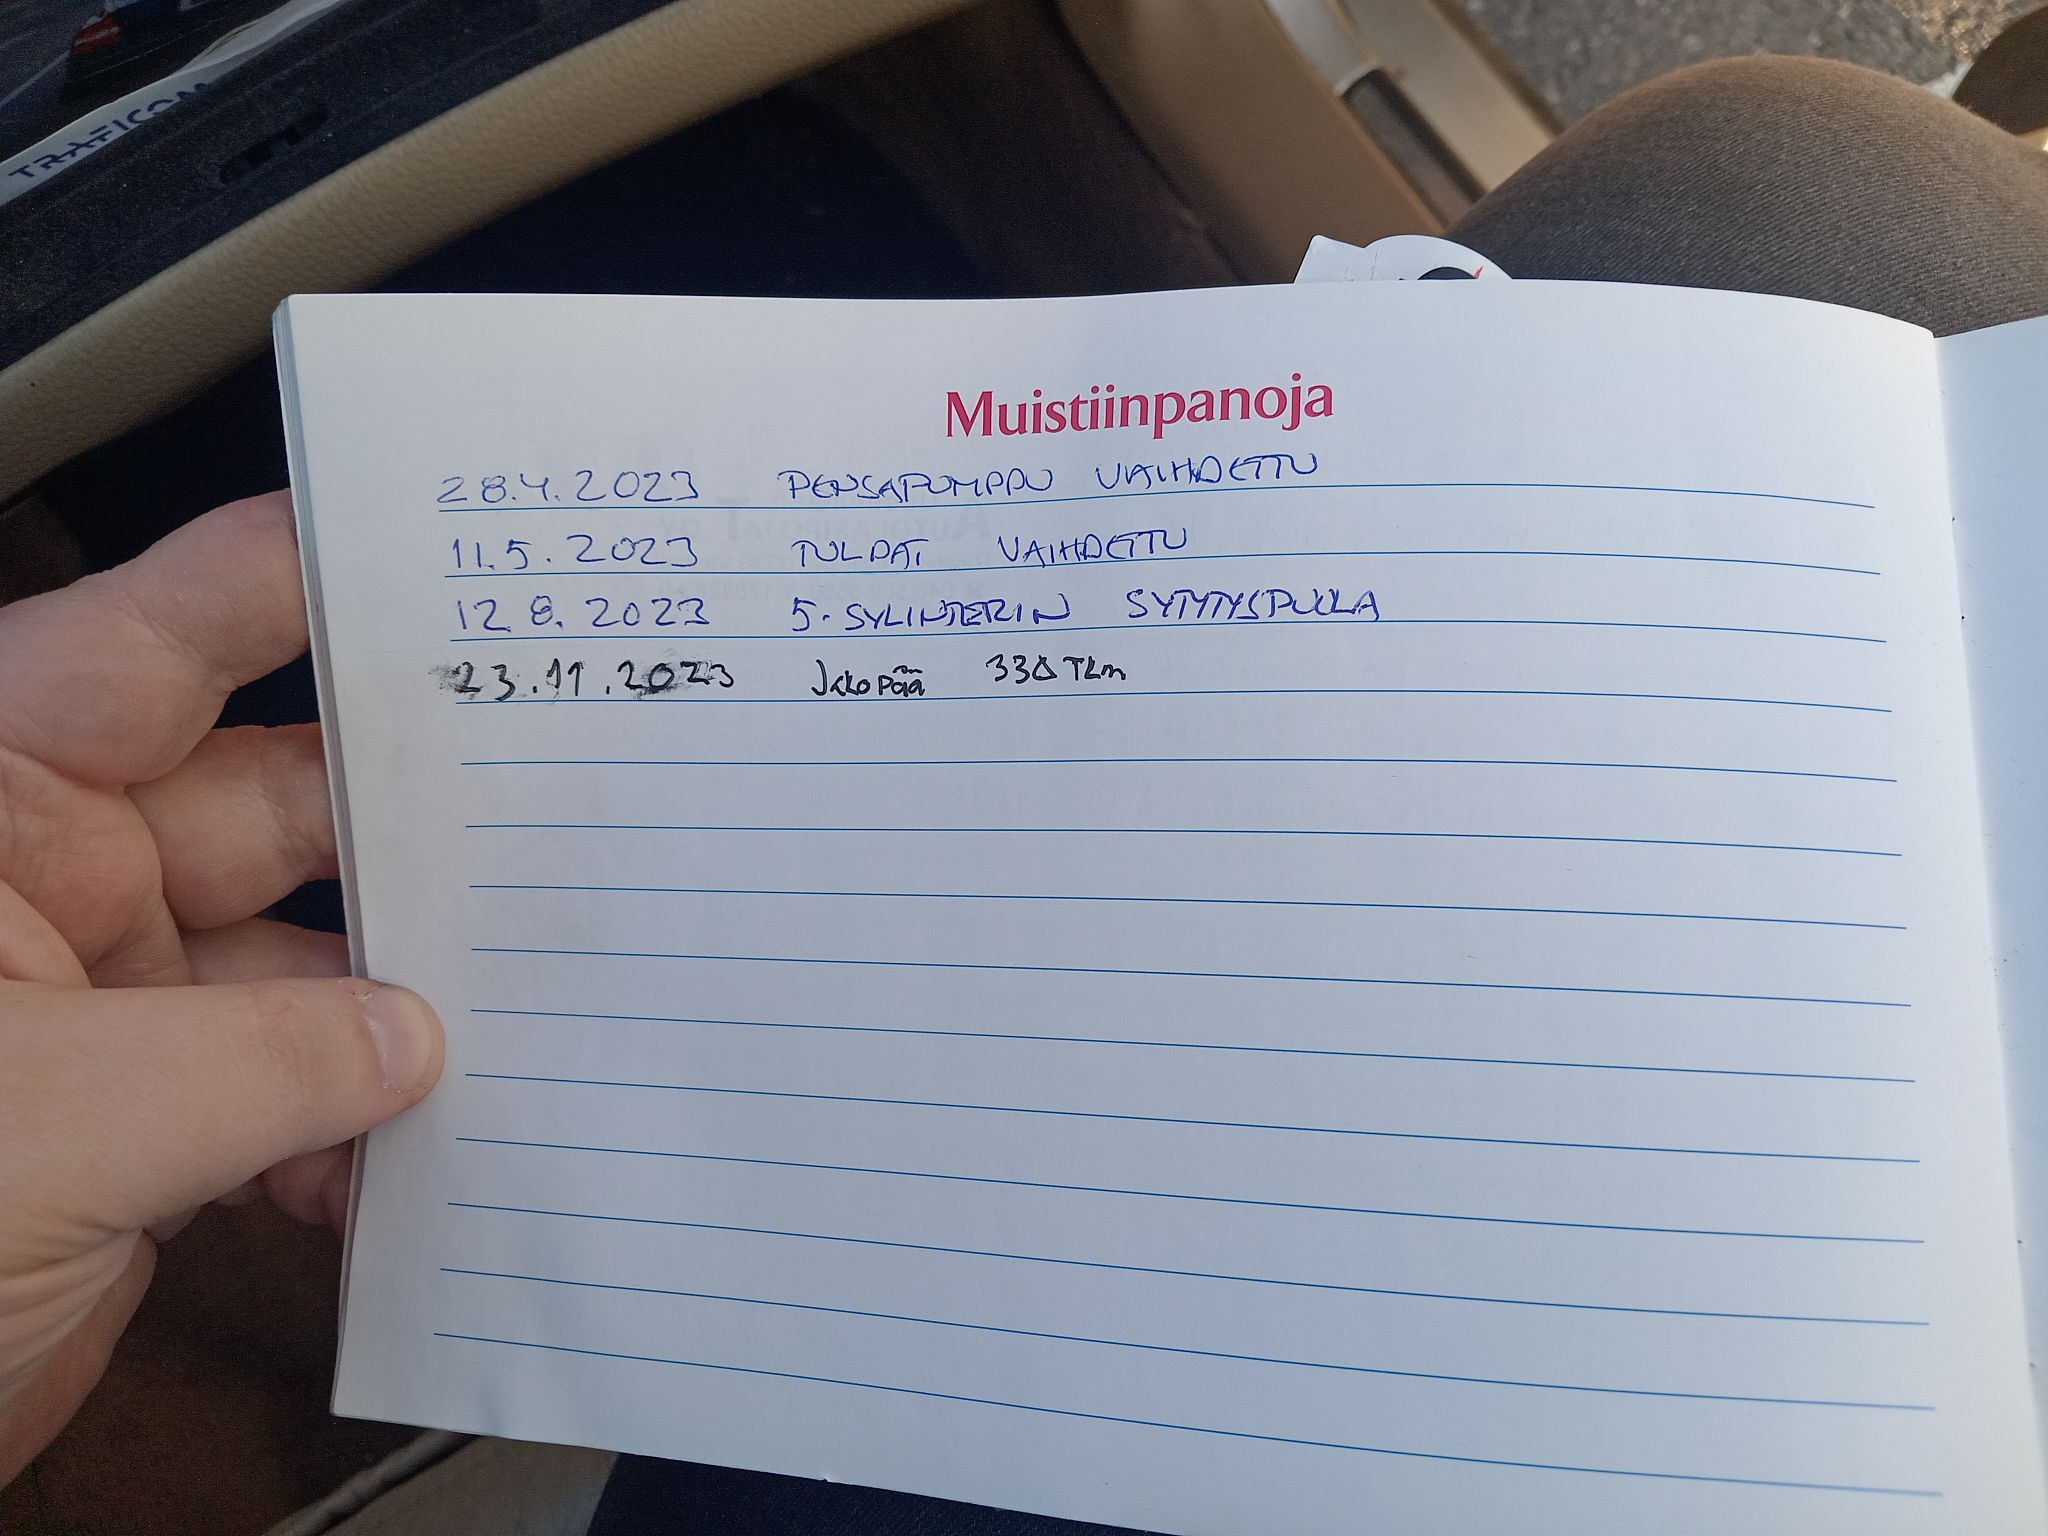 TRAFICOM
Muistiinpanoja
28.4.2023 PENSAPUMPPU VAIHDETTU
11.5.2023 TULPAT VAIHDETTU
12.8.2023 5.SYLINTERIN SYTYTYSPUOLA
23.11.2023 Jakopää 338 Tkm